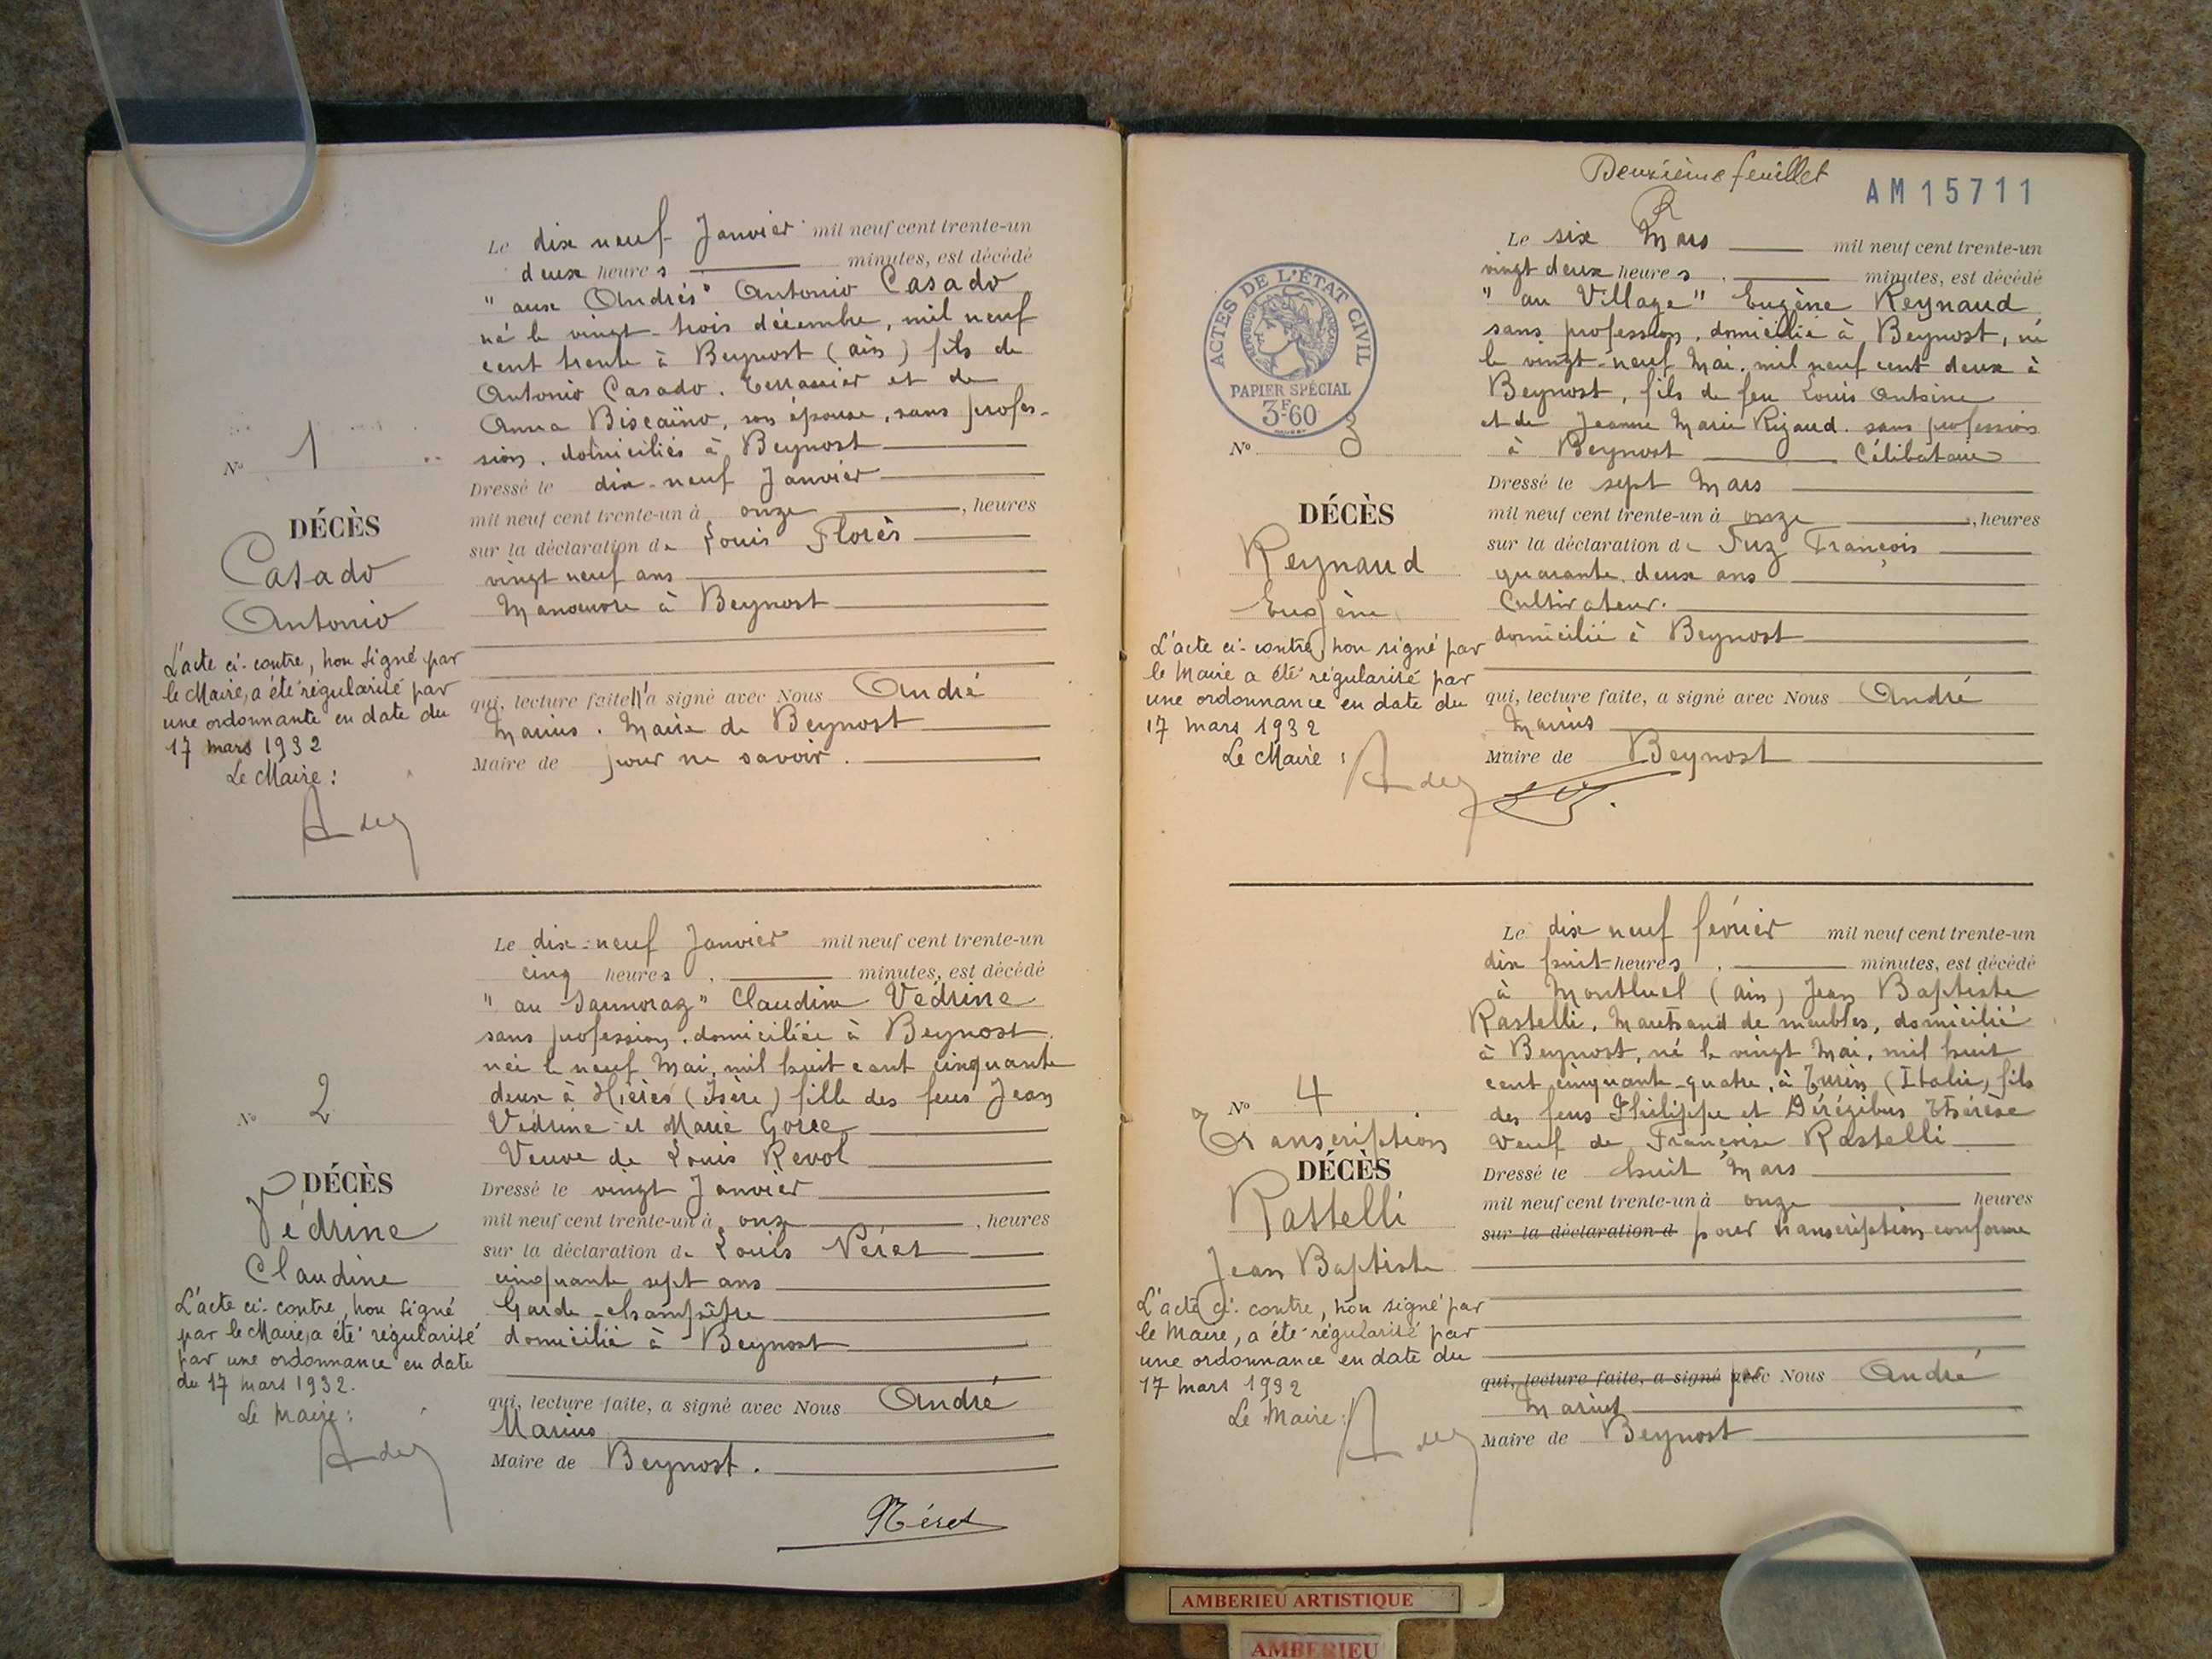 Le dix neuf Janvier mil neuf cent trente-un
deux heures minutes, est décédé
"aux Andrés" Antonio Casado
né le vingt-trois décembre, mil neuf
cent trente à Beynost (ain) fils de
Antonio Casado. Terrassier et de
Anna Biscaïno, son épouse, sans profes-
sion. domiciliés à Beynost
Dressé le dix-neuf Janvier
mil neuf cent trente-un à onze, heures
sur la déclaration de Louis Florès
vingt neuf ans
Manœuvre à Beynost
qui, lecture faite n'a signé avec Nous André
Marius. Maire de Beynost
Maire de pour ne savoir.
No 1
DÉCÈS
Casado
Antonio
L'acte ci-contre, non signé par
le Maire, a été régularisé par
une ordonnance en date du
17 mars 1932
Le Maire :
Le dix-neuf Janvier mil neuf cent trente-un
cinq heures minutes, est décédé
Claudine Védrine
sans profession. domiciliée à Beynost
née le neuf Mai, mil huit cent cinquante
deux à Hières (Isère) fille des feus Jean
Védrine et Marie Gorce
Veuve de Louis Revol
Dressé le vingt Janvier
mil neuf cent trente-un à onze, heures
sur la déclaration de Louis Néret
cinquante sept ans
Garde-champêtre
domicilié à Beynost
qui, lecture faite, a signé avec Nous André
Marius
Maire de Beynost.
Néret
No 2
DÉCÈS
Védrine
Claudine
L'acte ci-contre, non signé
par le Maire, a été régularisé
par une ordonnance en date
du 17 mars 1932.
Le Maire :
Deuxième feuillet
AM 15711
Le six Mars mil neuf cent trente-un
vingt deux heures minutes, est décédé
"au Village" Eugène Reynaud
sans profession. domicilié à Beynost, né
le vingt-neuf Mai. mil neuf cent deux à
Beynost, fils de feu Louis Antoine
et de Jeanne Marie Rigaud. sans profession
à Beynost Célibataire
Dressé le sept Mars
mil neuf cent trente-un à onze, heures
sur la déclaration de Fuz François
quarante deux ans
Cultivateur.
domicilié à Beynost
qui, lecture faite, a signé avec Nous André
Marius
Maire de Beynost
ACTES DE L'ÉTAT CIVIL
RÉPUBLIQUE FRANÇAISE
PAPIER SPÉCIAL
3F60
No 3
DÉCÈS
Reynaud
Eugène
L'acte ci-contre, non signé par
le Maire a été régularisé par
une ordonnance en date du
17 mars 1932
Le Maire :
Le dix neuf février mil neuf cent trente-un
dix huit heures minutes, est décédé
à Montluel (ain) Jean Baptiste
Rastelli, Marchand de meubles, domicilié
à Beynost, né le vingt Mai, mil huit
cent cinquante-quatre, à Turin (Italie) fils
des feus Philippe et Dérégibus Thérèse
Veuf de Françoise Rastelli
Dressé le huit Mars
mil neuf cent trente-un à onze heures
sur la déclaration d pour transcription conforme
qui, lecture faite, a signé avec Nous André
Marius
Maire de Beynost
No 4
Transcription
DÉCÈS
Rastelli
Jean Baptiste
L'acte ci-contre, non signé par
le Maire, a été régularisé par
une ordonnance en date du
17 mars 1932
Le Maire :
AMBERIEU ARTISTIQUE
AMBERIEU